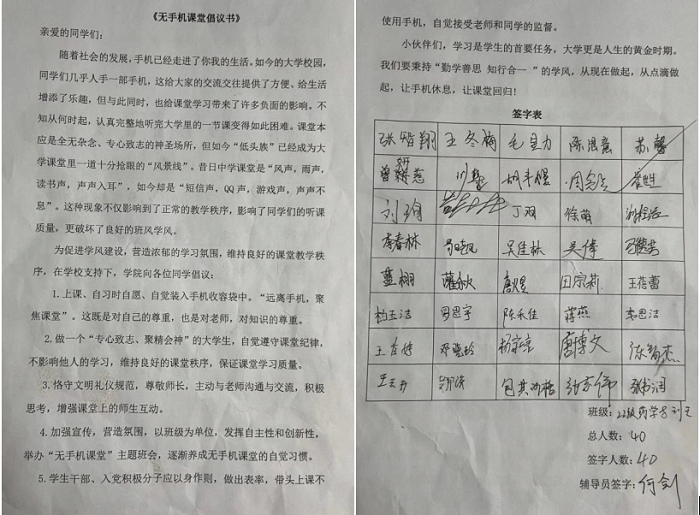 《无手机课堂倡议书》
亲爱的同学们：
随着社会的发展，手机已经走进了你我的生活。如今的大学校园，
同学们几乎人手一部手机，这给大家的交流交往提供了方便、给生活
增添了乐趣，但与此同时，也给课堂学习带来了许多负面的影响。不
知从何时起，认真完整地听完大学里的一节课变得如此困难。课堂本
应是全无杂念、专心致志的神圣场所，但如今“低头族”已经成为大
学课堂里一道十分抢眼的“风景线”。昔日中学课堂是“风声，雨声，
读书声，声声入耳”，如今却是“短信声，QQ声，游戏声，声声不
息”。这种现象不仅影响到了正常的教学秩序，影响了同学们的听课
质量，更破坏了良好的班风学风。
为促进学风建设，营造浓郁的学习氛围，维持良好的课堂教学秩
序，在学校支持下，学院向各位同学倡议：
1.上课、自习时自愿、自觉装入手机收容袋中。“远离手机，聚
焦课堂”。这既是对自己的尊重，也是对老师，对知识的尊重。
2.做一个“专心致志、聚精会神”的大学生，自觉遵守课堂纪律，
不影响他人的学习，维持良好的课堂秩序，保证课堂学习质量。
3.恪守文明礼仪规范，尊敬师长，主动与老师沟通与交流，积极
思考，增强课堂上的师生互动。
4.加强宣传，营造氛围，以班级为单位，发挥自主性和创新性，
举办“无手机课堂”主题班会，逐渐养成无手机课堂的自觉习惯。
5.学生干部、入党积极分子应以身作则，做出表率，带头上课不
使用手机，自觉接受老师和同学的监督。
小伙伴们，学习是学生的首要任务，大学更是人生的黄金时期。
我们要秉持“勤学善思 知行合一 ”的学风，从现在做起，从点滴做
起，让手机休息，让课堂回归！
签字表
张智翔 王冬梅 毛呈力 陈思意 苏馨
刘 丁羽 徐萌
李春林 吴佳林 吴倩
蓝栩 唐煜 田宗莉 王蓓蕾
罗思宇 陈禾佳 蒋燕 李思洁
邓晓玲 唐博文 陈智杰
班级：22级药学
总人数：40
签字人数：40
辅导员签字：何剑